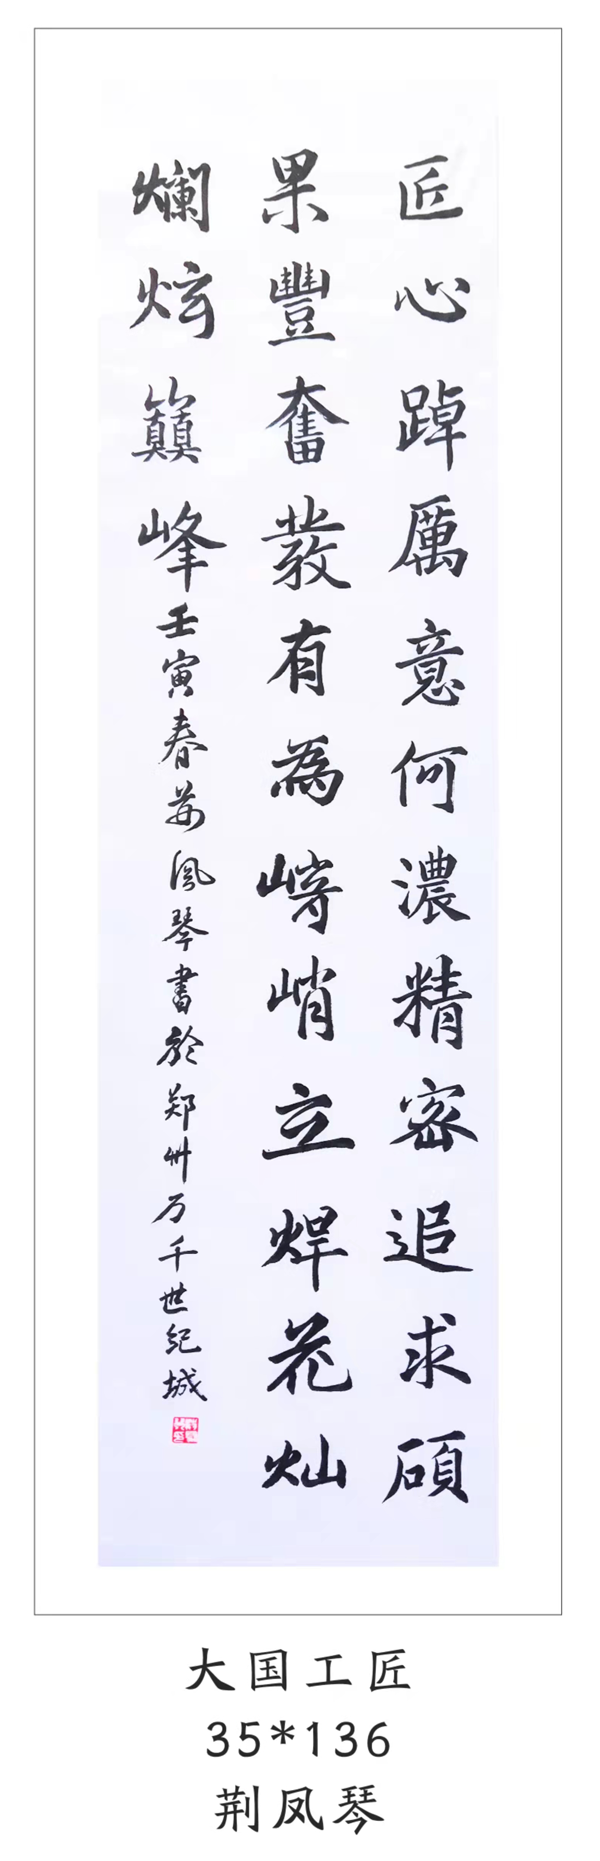 匠心踔厲意何濃精密追求碩
果豐奮發有為峭立焊花灿
爛炫峰壬寅春荆鳳琴書於郑州万千世纪城
大国工匠
35*136
荆凤琴